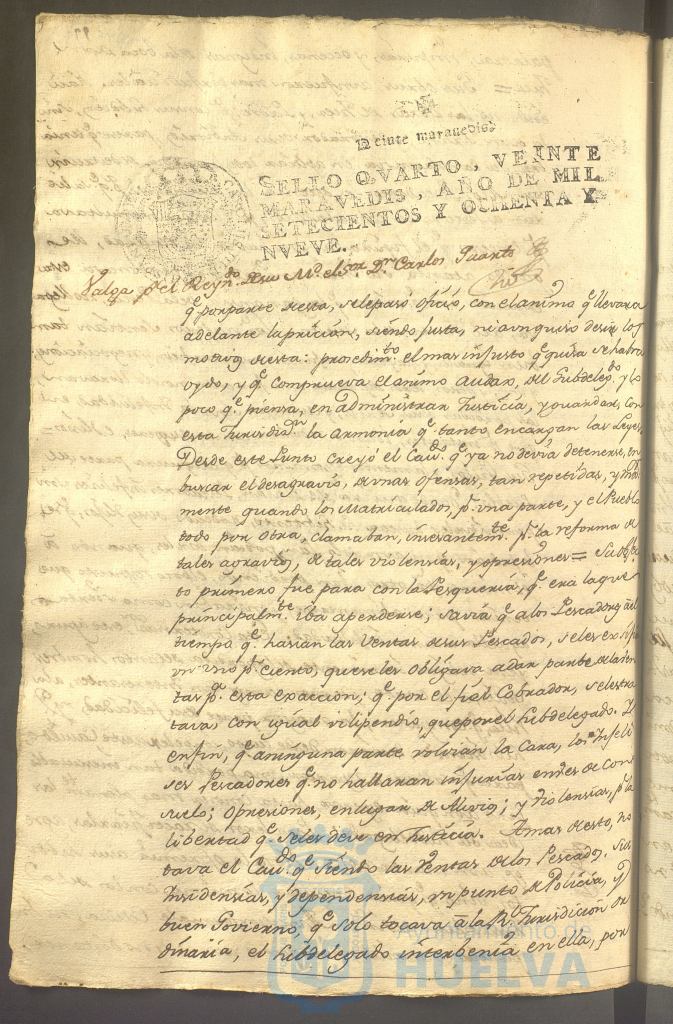 Veinte maravedis.
SELLO QVARTO, VEINTE
MARAVEDIS, AÑO DE MIL
SETECIENTOS Y OCHENTA Y
NVEVE.
Valga pª el Reynᵈᵒ de su Mᵈ el Sᵒʳ Dⁿ Carlos Quarto
qᵉ por parte de esta, se le pasó oficio, con el animo qᵉ llevara
adelante la pricion, siendo justa, ni aun quiso desir los
motivos de esta: procedimᵗᵒ el mas injusto qᵉ quisa se habra
oydo, y qᵉ comprueva el animo audas, del Subdelegᵈᵒ y lo
poco qᵉ piensa, en administrar Justicia, y guardar, con
esta Jurisdiᵒⁿ la armonia qᵉ tanto encargan las Leyes.
Desde este Punto creyó el Cavᵈᵒ qᵉ ya no devia detenerse, en
buscar el desagravio, de unas ofensas, tan repetidas, y
mente quando los Matriculados, pʳ una parte, y el Pueblo
todo por otra, clamaban, incesantemᵗᵉ pʳ la reforma de
tales agravios, de tales violensias, y opresiones =
to primero fue para con la Pesqueria, qᵉ era la que
principalmᵗᵉ iba a perderse; savia qᵉ a los Pescadores al
tiempo qᵉ hasian las Ventas de sus Pescados, se les
un uno pʳ ciento, que se les obligava a dar parte de las
tas pʳ esta exaccion; qᵉ por el fiel Cobrador, se les tra
tava, con igual vilipendio, que por el Subdelegado. Y
en fin, qᵉ a ninguna parte volvian la Cara, los Infeli
ses Pescadores qᵉ no hallaran injurias en ves de Con
suelo; Opresiones, en lugar de Alivio; y Violensias, pʳ la
libertad qᵉ se les deve en Justicia. A mas de esto, no
tava el Cavᵈᵒ qᵉ siendo las Ventas de los Pescados, sus
Insidensias, y dependensias, un punto de Policia, y
buen Govierno, qᵉ solo tocava a la Rˡ Jurisdicion Or
dinaria, el Subdelegado interbenia en ella, por
Ayuntamiento de
HUELVA